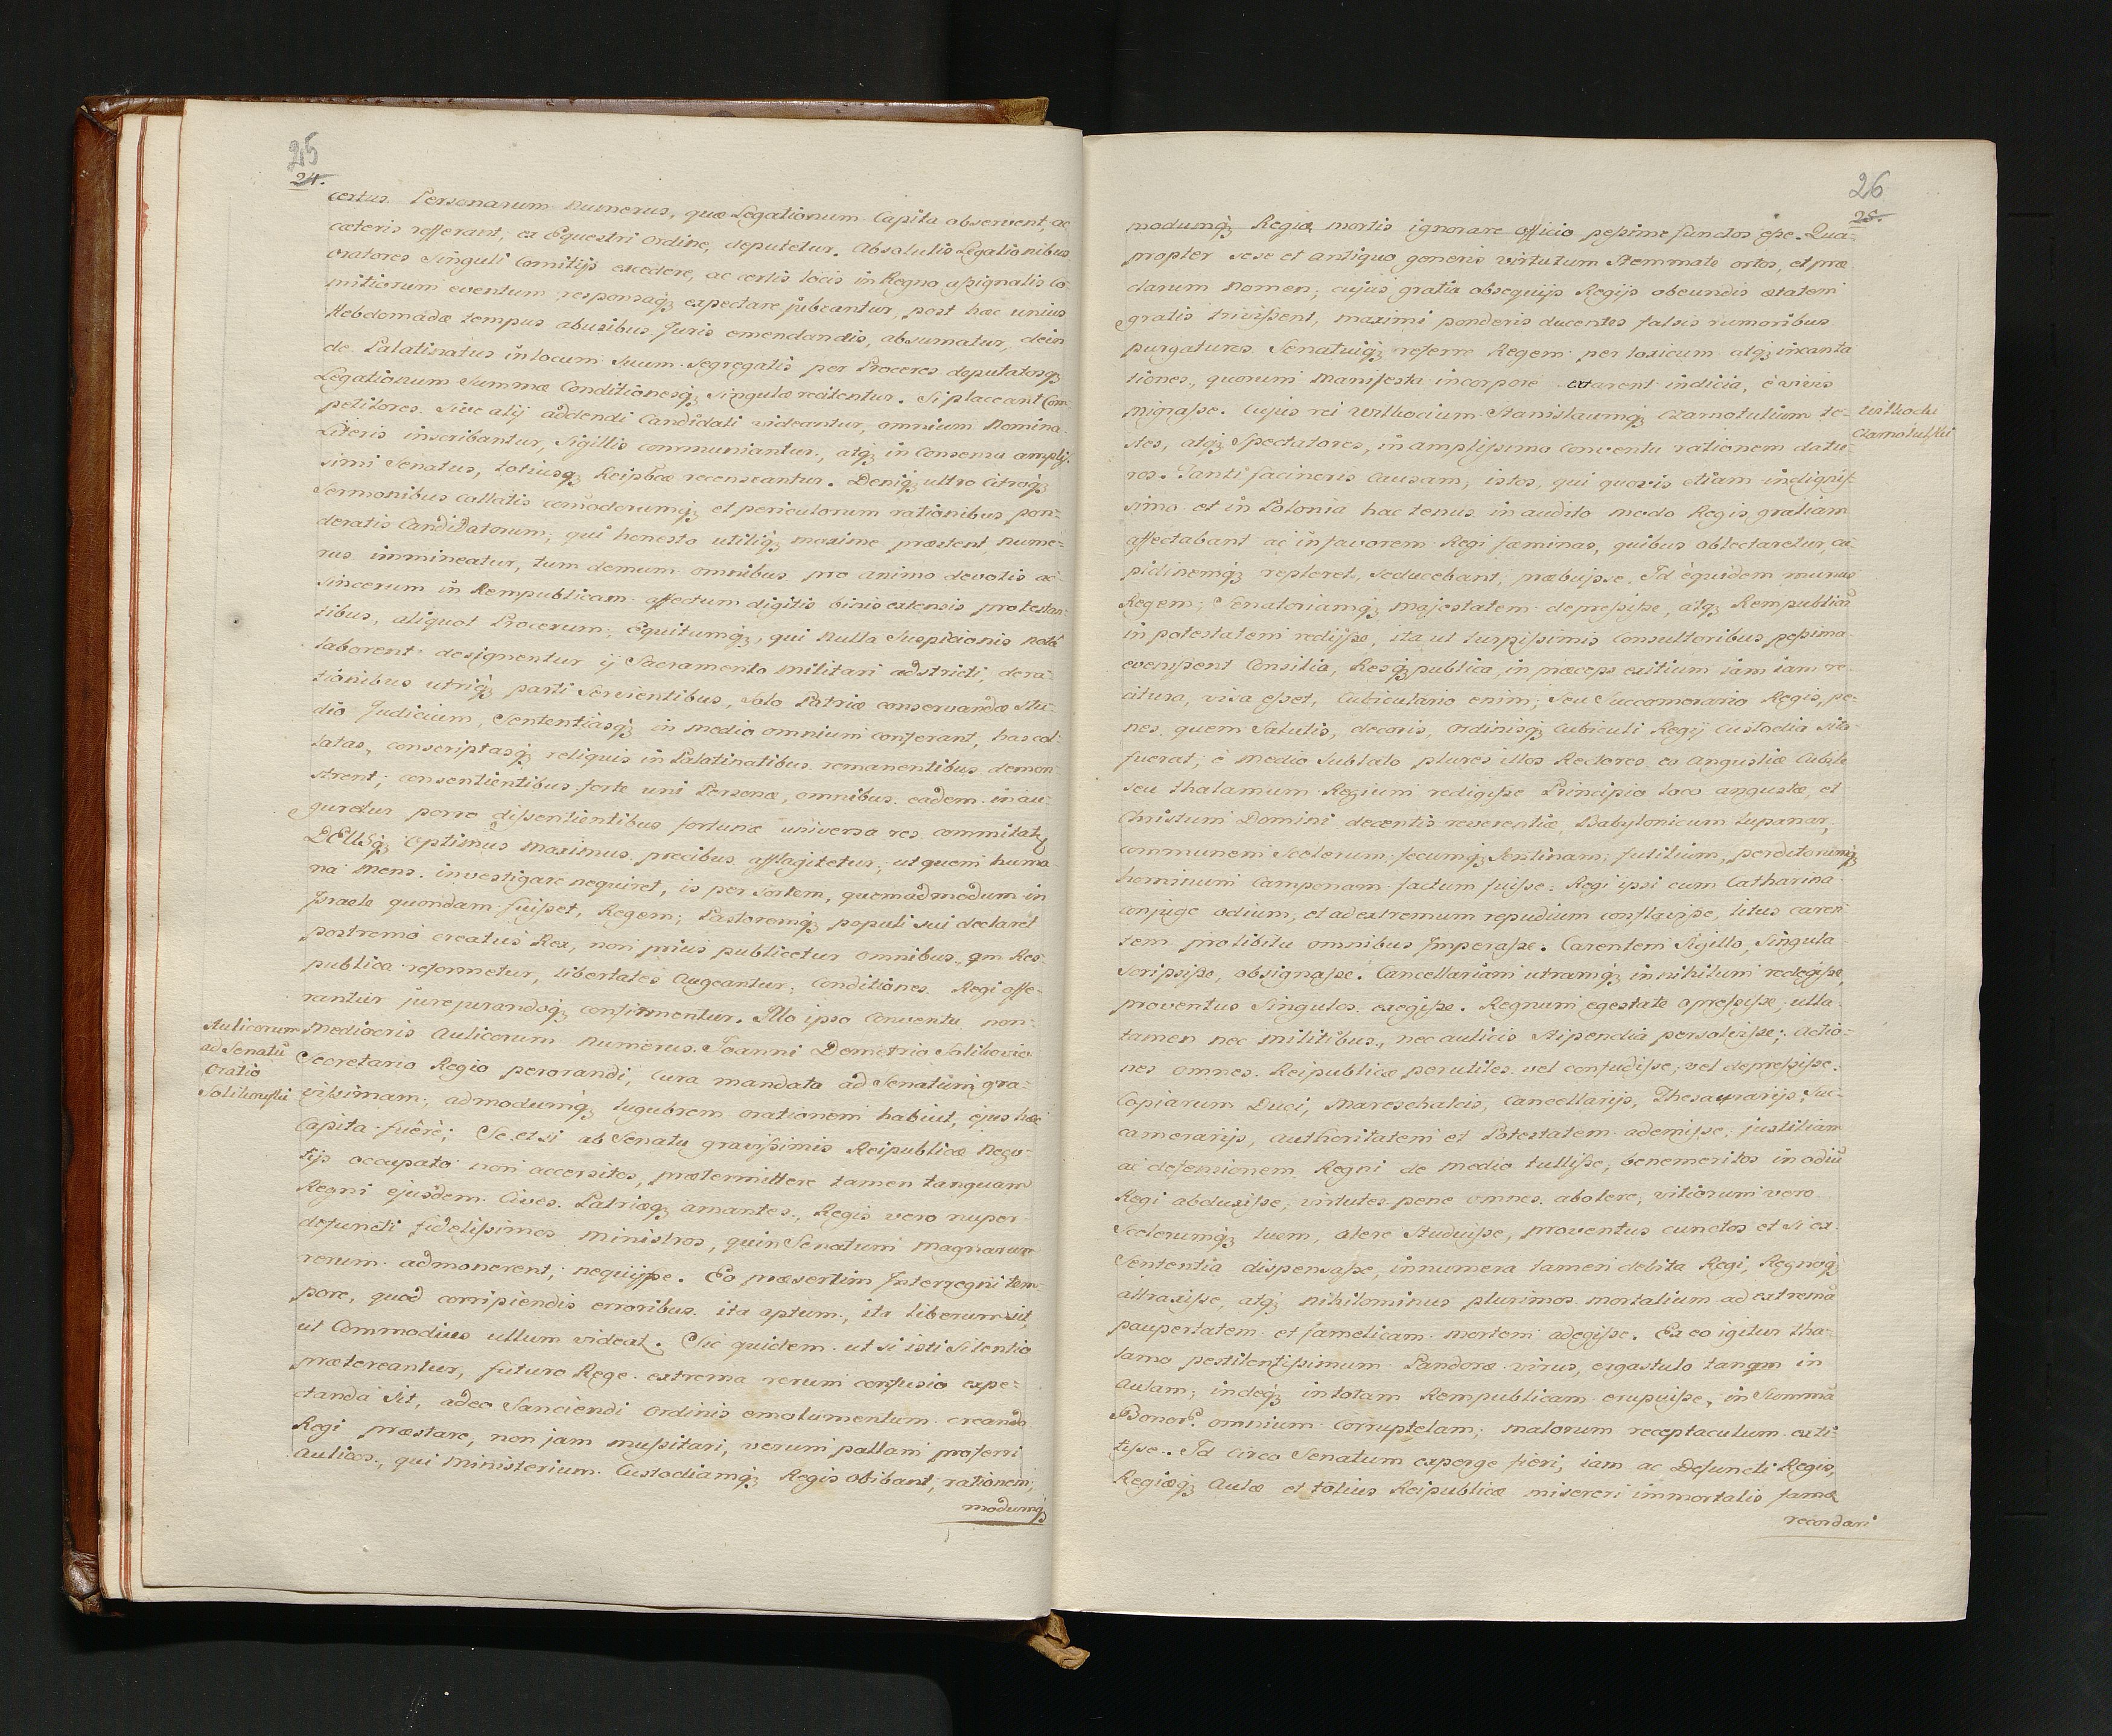 25
24.
certus Personarum numerus, quæ Legationum Capita observent, ac
cæteris referant, ex Equestri ordine, deputetur. Absolutis Legationibus
oratores singuli Comitijs excedere, ac certis locis in Regno aſsignatis Co-
mitiorum eventum responsaq₃ expectare jubeantur, post hæc unius
Hebdomadæ tempus abusibus Juris emendandis, absumatur, dein
de Palatinatus in locum suum segregatis per Proceres deputatosq₃
Legationum Summæ Conditionesq₃ singulæ recitentur. Si placeant Com-
petitores sive alij addendi Candidati videantur, omnium Nomina
Literis inscribantur, Sigillis communiantur, atq₃ in Consensu ampliſ-
simi Senatus, totiusq₃ Reipbcæ recenseantur. Deniq₃ ultro citroq₃
Sermonibus collatis com̃odorumq₃ et periculorum rationibus pon-
deratis Candidatorum, qui honesto utiliq₃ maxime præstent, nume-
rus immineatur, tum demum omnibus pro animo devotis ac
sincerum in Rempublicam affectum digitis binis extensis protestan-
tibus, aliquot Procerum, Equitumq₃, qui nulla Suspicionis nota
laborent designentur ij Sacramento militari adstricti, de ra-
tionibus utriq₃ parti Servientibus, solo Patriæ conservandæ stu-
dio Judicium, Sententiasq₃ in medio omnium conferant, has col-
latas, conscriptasq₃ reliquis in Palatinatibus remanentibus demon
strent; consentientibus forte uni Personæ, omnibus eadem inau-
guretur porro diſsentientibus fortunæ universa res committat
DEUSq₃ optimus maximus precibus afflagitetur, ut quem huma-
na mens investigare nequiret, is per sortem, quemadmodum in
Israele quondam fuiſset, Regem, Pastoremq₃ populi sui declaret
postremo creatus Rex, non prius publicetur omnibus, qm Res-
publica reformetur, libertates augeantur, Conditiones Regi offe-
rantur jurejurandoq₃ confirmentur. Illo ipso Conventu non-
mediocris Aulicorum numerus Joanni Demetrio Solikovio
Secretario Regio perorandi, Cura mandata ad Senatum gra-
viſsimam, admodumq₃ lugubrem orationem habuit, ejus hæc
Capita fuêrè; Se et si ab Senatu graviſsimis Reipublicæ nego-
tijs occupato non accersitos, prætermittere tamen tanquam
Regni ejusdem Cives Patriæq₃ amantes, Regis vero nuper
defuncti fidelissimos ministros, quin Senatum magnarum
rerum admonerent, nequijſse. Eo præsertim Interregni tem
pore, quod corripiendis erroribus ita aptum, ita liberum sit,
ut Commodius ullum videat. Sic quidem ut si isti silentio
prætereantur, futuro Rege extrema rerum confusio expe-
ctanda sit, adeo Sanciendi ordinis emolumentum creando
Regi præstare, non jam muſsitari, verum pallam proferri
Aulicos, qui ministerium Custodiamq₃ Regis obibant, rationem,
modumq₃
Aulicorum
ad Senatũ
Oratio
Solikowſki
26
25.
modumq₃ Regiæ mortis ignorare officio peſsime functos eſse. Qua-
propter sese et antiquo generis virtutum stemmate ortos, et præ
clarum nomen, cujus gratia obsequijs Regijs obeundis ætatem
gratis triviſsent, maximi ponderis ducentes falsis rumoribus
purgaturos Senatuiq₃ referre Regem per toxicum atq₃ incanta
tiones, quorum manifesta in corpore extarent indicia, è vivis
migraſse. Cujus rei Wilhocium Stanislaumq₃ Czarnotulium te-
stes, atq₃ Spectatores, in ampliſsimo Conventu rationem datu-
ros. Tanti facinoris causam, istos, qui quovis etiam indigniſ-
simo et in Polonia hactenus inaudito modo Regis gratiam
affectabant ac in favorem Regi fæminas, quibus oblectaretur, cu-
pidinemq₃ repleret, seducebant, præbuiſse. Id équidem munus
Regem, Senatoriamq₃ majestatem depreſsiſse, atq₃ Rempublicã
in potestatem redijſse, ita ut turpiſsimis Consultoribus peſsima
eveniſsent Consilia, Resq₃ publica, in præceps exitium iam iam re-
citura, visa eſset, Cubiculario enim, seu Succamerario Regis, pe-
nes quem Salutis, decoris, ordinisq₃ Cubiculi Regij Custodia sita
fuerat, è medio Sublato plures illos Rectores eo angustiæ Cubile
seu thalamum Regium redigiſse Principio loco angustæ, et
Christum Domini decentis reverentiæ, Babylonicum lupanar,
communem Scelerum, fecumq₃ Sentinam, futilium, perditorumq₃
hominum Camponam factum fuiſse: Regi ipsi cum Catharina
conjuge odium, et ad extremum repudium conflaviſse, litus caren
tem pro libitu omnibus Imperaſse. Carentem Sigillo, singula
scripsiſse, obsignaſse. Cancellariam utramq₃ in nihilum redegiſse,
proventus Singulos exegiſse. Regnum egestate opreſsiſse, ulla
tamen nec militibus, nec aulicis stipendia persolviſse; actio-
nes omnes Reipublicæ perutiles vel confudiſse, vel depreſsiſse.
Copiarum Duci, Mareschalcis, Cancellarijs, Thesaurarijs, Suc-
camerarijs, authoritatem et Potestatem ademiſse, justitiam
ac defensionem Regni de medio tulliſse, benemeritos in odiũ
Regi abduxiſse, virtutes pene omnes abolere, vitiorum vero
Scelerumq₃ luem, alere studuiſse, proventus cunctos et si ex
Sententia dispensaſse, innumera tamen debita Regi, Regnoq₃
attraxiſse, atq₃ nihilominus plurimos mortalium ad extremã
paupertatem et famelicam mortem adegiſse. Ex eo igitur tha-
lamo pestilentiſsimum Pandoræ virus, ergastulo tanqm in
Aulam, indeq₃ in totam Rempublicam erupuiſse, in Summã
Bonor̃ omnium corruptelam, malorum receptaculum exti-
tiſse. Id circo Senatum experge fieri, iam ac Defuncti Regis,
Regiæq₃ Aulæ et totius Reipublicæ misereri immortalis famæ
recordari
Wilhocki
Czarnotulſki